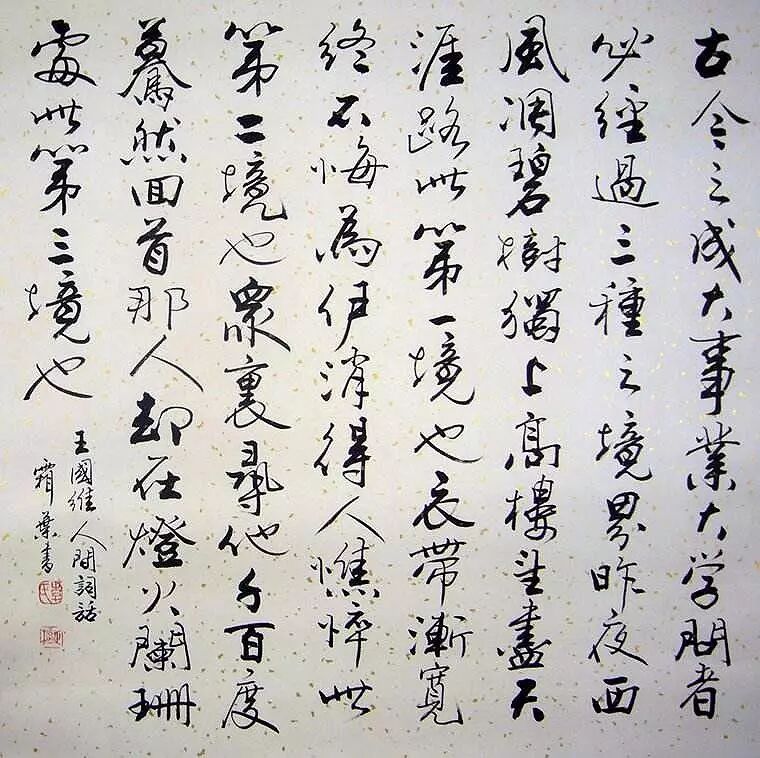 古今之成大事業大学問者
必經過三種之境界昨夜西
風凋碧樹獨上高樓望盡天
涯路此第一境也衣帶漸寬
終不悔為伊消得人憔悴此
第二境也眾裏尋他千百度
驀然回首那人却在燈火闌珊
處此第三境也
王國維人間詞話
霜葉書